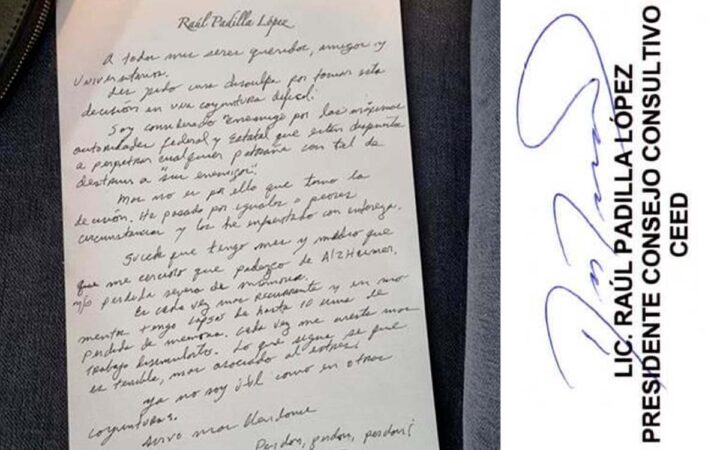 Raúl Padilla López
A todos mis seres queridos, amigos y
Universitarios.
Les pido una disculpa por tomar esta
decisión en una coyuntura difícil.
Soy considerado "enemigo" por las máximas
autoridades Federal y Estatal que están dispuestas
a perpetrar cualquier patraña con tal de
destruir a "su enemigo".
Mas no es por ello que tomo la
decisión. He pasado por iguales o peores
circunstancias y las he enfrentado con entereza.
Sucede que tengo mes y medio que
que me cerciore que padezco de Alzheimer,
y/o perdida severa de memoria.
Es cada vez mas recurrente y en mo
mentos tengo lapsos de hasta 10 de
perdida de memoria. Cada vez me cuesta mas
trabajo disimularlos. Lo que sigue se que
es terrible, mas asociado al estres.
ya no soy útil como en otras
coyunturas.
mas
Perdon, perdon, perdon!
LIC. RAÚL PADILLA LÓPEZ
PRESIDENTE CONSEJO CONSULTIVO
CEED